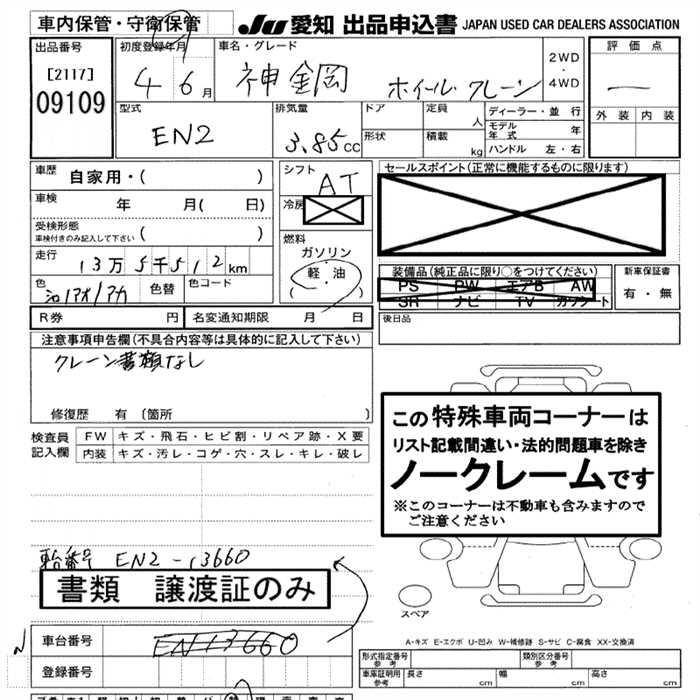 車内保管・守衛保管
JU 愛知 出品申込書 JAPAN USED CAR DEALERS ASSOCIATION
出品番号
[2117]
09109
初度登録年月
4 6 月
車名・グレード
神鋼 ホイール クレーン
2WD
・
4WD
評価点
外装 内装
型式
EN2
排気量
3.85 cc
ドア
形状
定員 人
積載 kg
ディーラー・並行
モデル年式 年
ハンドル 左・右
車歴 自家用・( )
車検 年 月( 日)
受検形態
車検付きのみ記入して下さい ( )
走行 13万5千512km
色 色替 色コード
シフト
AT
冷房
燃料
ガソリン
軽・油
( )
セールスポイント(正常に機能するものに限ります)
装備品(純正品に限り○をつけてください)
PS PW エアB AW
SR ナビ TV ガワシート
新車保証書
有・無
R券 円
名変通知期限 月 日
後日品
注意事項申告欄(不具合内容等は具体的に記入して下さい)
クレーン書類なし
修復歴 有〔箇所 〕
検査員
記入欄
FW キズ・飛石・ヒビ割・リペア跡・X要
内装 キズ・汚レ・コゲ・穴・スレ・キレ・破レ
この特殊車両コーナーは
リスト記載間違い・法的問題車を除き
ノークレームです
※このコーナーは不動車も含みますので
ご注意ください
車台番号 EN2-13660
書類 譲渡証のみ
スペア
車台番号 EN13660
登録番号
A-キズ E-エクボ U-凹み W-補修跡 S-サビ C-腐食 XX-交換済
形式指定番号
参考
類別区分番号
参考
車庫証明用
参考
長さ cm
幅 cm
高さ cm